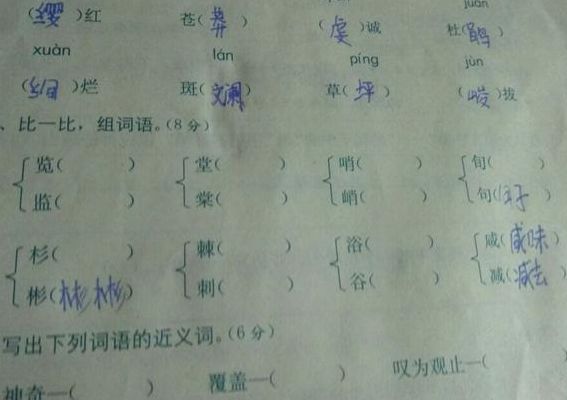 juān
(缨)红 苍(莽) (虔)诚 杜(鹃)
xuàn lán píng jùn
(绚)烂 斑(斓) 草(坪) (峻)拔
、比一比，组词语。(8分)
览( ) 堂( ) 哨( ) 旬( )
监( ) 棠( ) 峭( ) 句(句子)
杉( ) 棘( ) 浴( ) 咸(咸味)
彬(彬彬) 刺( ) 谷( ) 减(减去)
写出下列词语的近义词。(6分)
神奇—( ) 覆盖—( ) 叹为观止—(